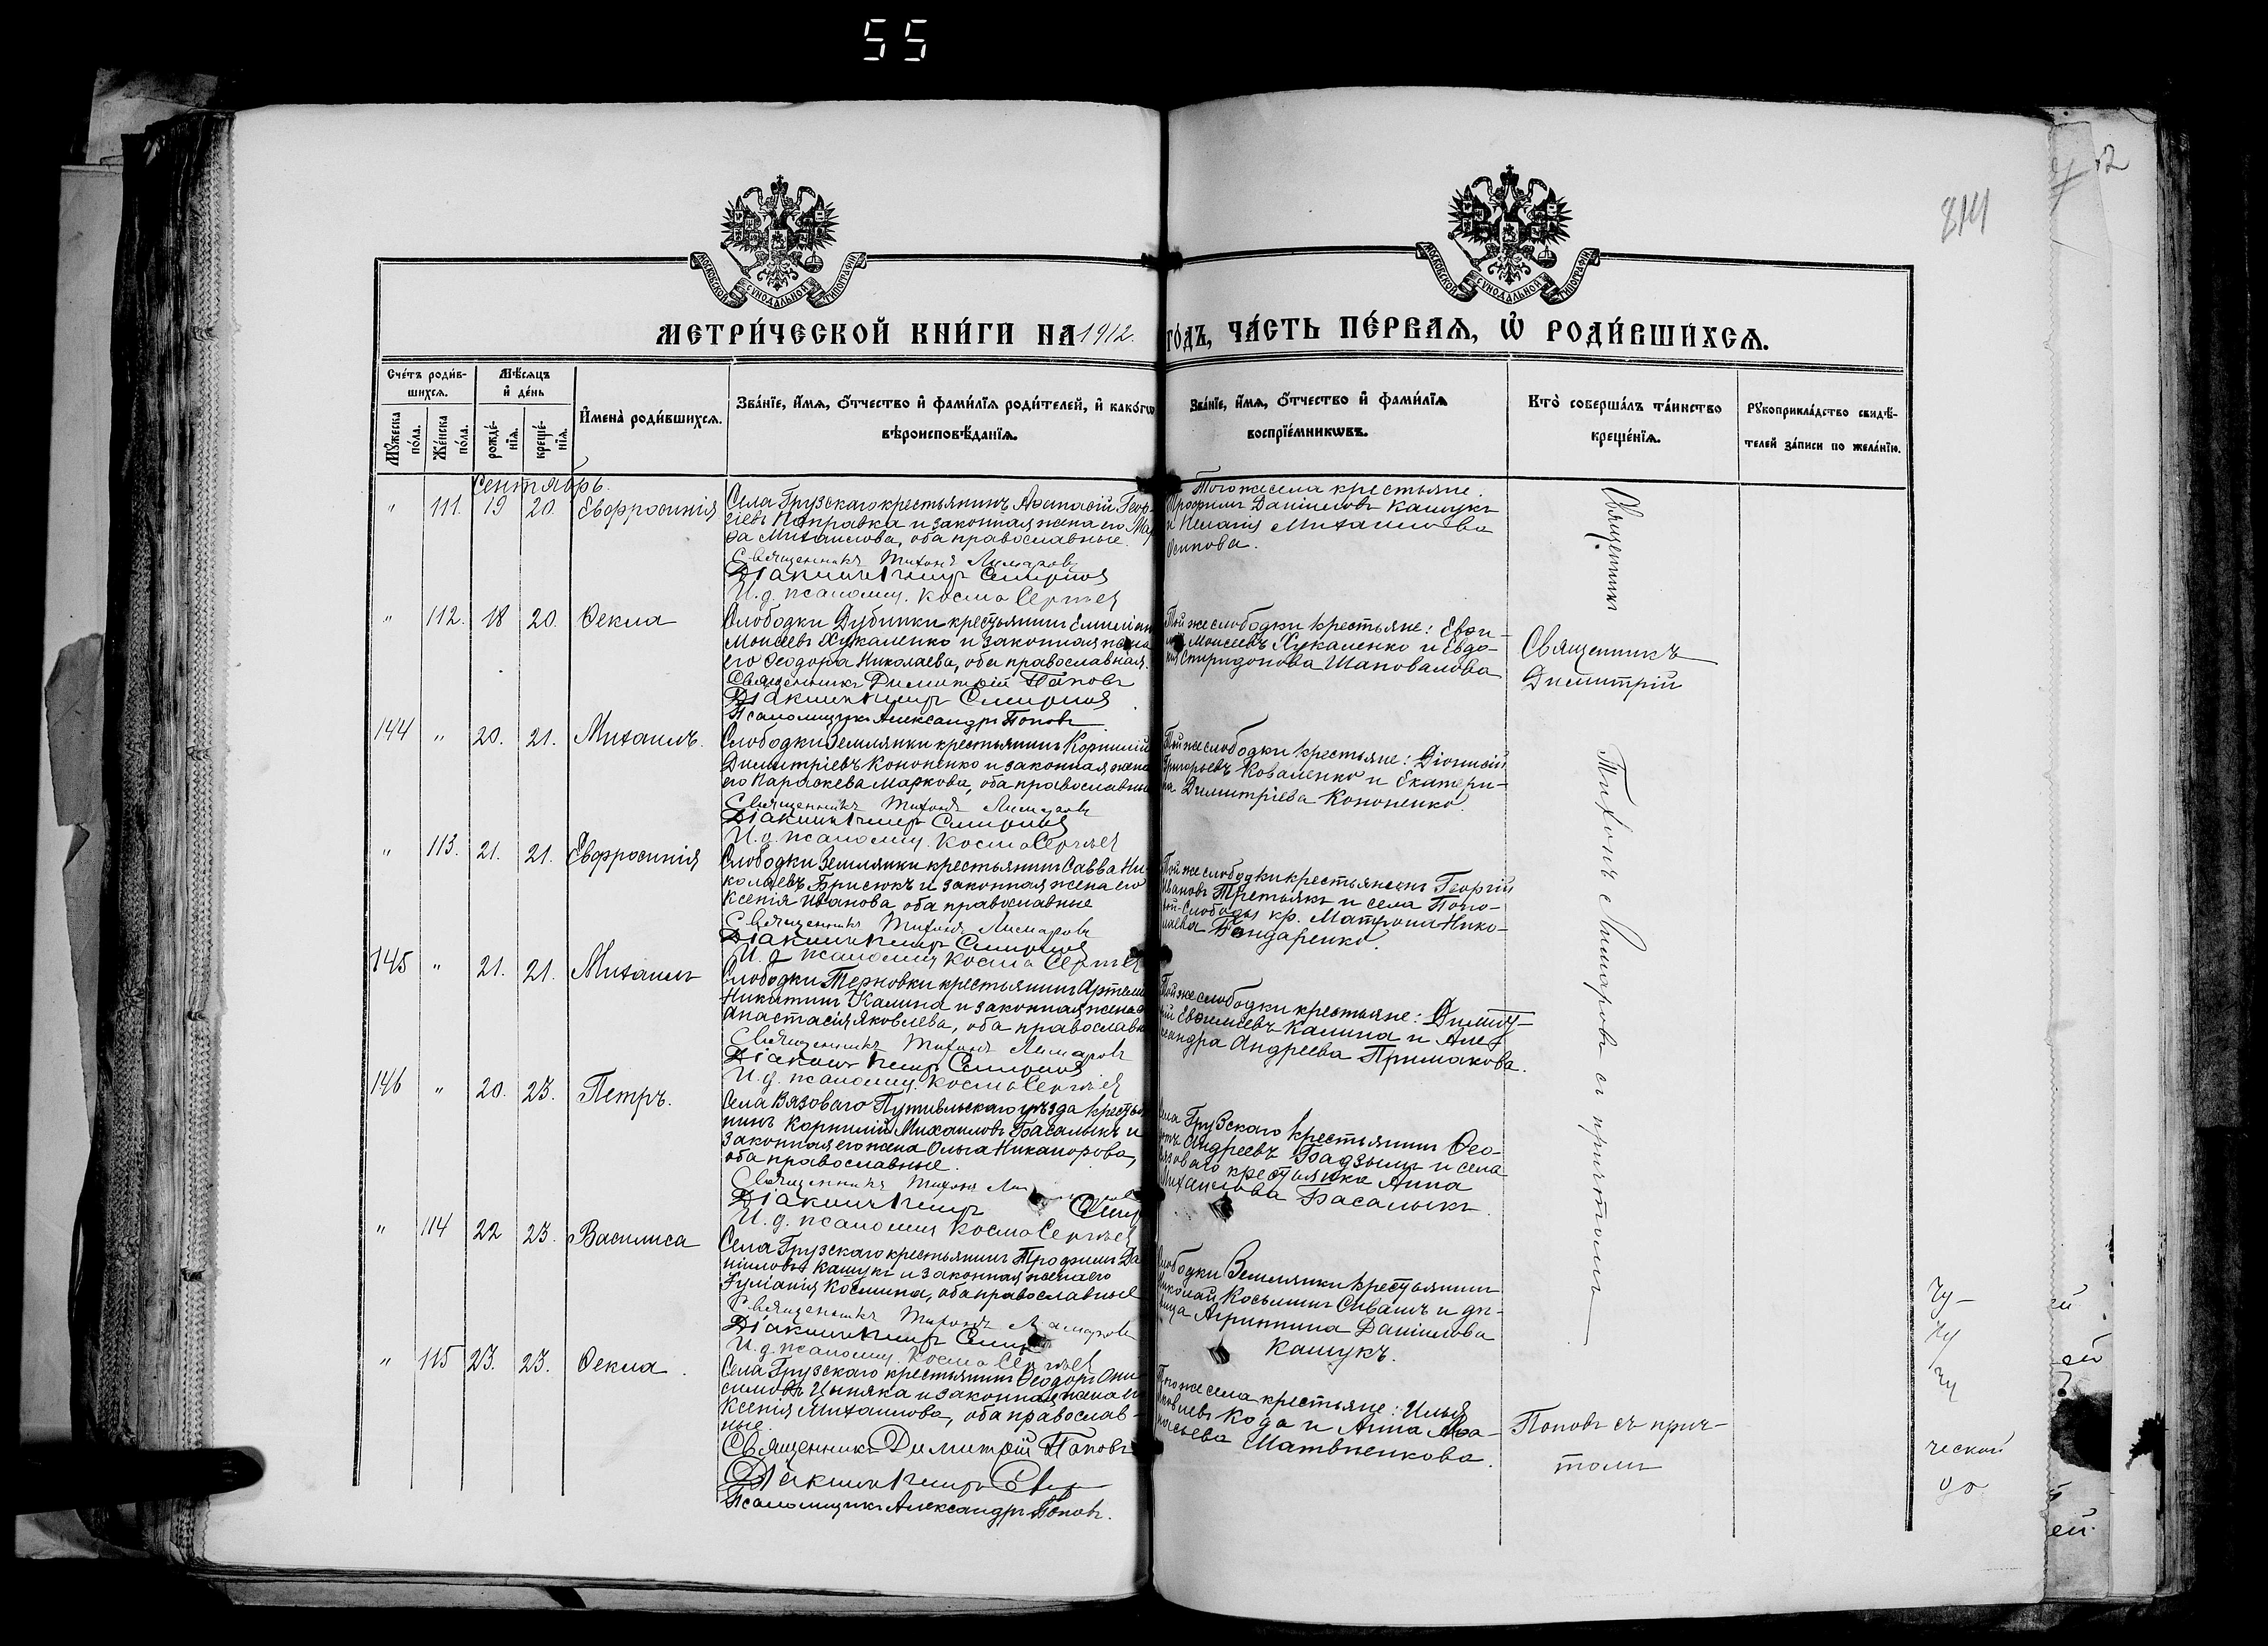 55
814
МОСКОВСКОЙ СѴНОДАЛЬНОЙ ТИПОГРАФІИ
МОСКОВСКОЙ СѴНОДАЛЬНОЙ ТИПОГРАФІИ
МЕТРИ́ЧЕСКОЙ КНИ́ГИ НА 1912. ГО́ДЪ, ЧА́СТЬ ПЕ́РВАѦ, Ѽ РОДИ́ВШИХСѦ.
Сче́тъ роди́вшихсѧ.
Мꙋ́жеска по́ла.
Же́нска по́ла.
Мѣ́сѧцъ и҆ де́нь
рожде́нїѧ.
креще́нїѧ.
И҆мена̀ роди́вшихсѧ.
Зва́нїе, и҆́мѧ, ѻ҆́тчество и҆ фами́лїѧ роди́телей, и҆ како́гѡ
вѣроисповѣ́данїѧ.
Зва́нїе, и҆́мѧ, ѻ҆́тчество и҆ фами́лїѧ
воспрїе́мникѡвъ.
Кто̀ соверша́лъ та́инство
креще́нїѧ.
Рꙋкоприкла́дство свидѣ́телей за́писи по жела́нїю.
Сентябрь.
" 111. 19 20. Евфросинія
Села Грузскаго крестьянинъ Аѳанасій Геор-
гіевъ Поправка и законная жена его Мар
ѳа Михаилова, оба православные.
Священникъ Тихонъ Лимаровъ
Діаконъ Петръ Смирнов
И. д. псаломщ. Косма Сергѣев
Тогоже села крестьяне.
Трофимъ Даніиловъ Кашукъ
и Пелагія Михаилова
Осипова.
Священникъ
Тихонъ Лимаровъ съ причтомъ
" 112. 18 20. Ѳекла
Слободки Дубинки крестьянинъ Емиліан
Моисеевъ Хукаленко и законная жена
его Ѳеодора Николаева, оба православная.
Священникъ Димитрій Поповъ
Діаконъ Петръ Смирнов
Псаломщикъ Александръ Поповъ
Той же слободки крестьяне: Евѳи-
мій Моисеевъ Хукаленко и Евдо-
кія Спиридонова Шаповалова
Священникъ
Димитрій
144 " 20. 21. Михаилъ.
Слободки Землянки крестьянинъ Корнилій
Димитріевъ Кононенко и законная жена
его Параскева Маркова, оба православны
Священникъ Тихонъ Лимаровъ
Діаконъ Петръ Смирнов
И. д. псаломщ. Косма Сергѣев
Той же слободки крестьяне: Діонисій
Григорьевъ Коваленко и Екатери-
на Димитріева Кононенко.
" 113. 21. 21. Евфросинія
Слободки Землянки крестьянинъ Савва Ни
колаевъ Брисюкъ и законная жена его
Ксенія Иванова оба православные
Священникъ Тихонъ Лимаровъ
Діаконъ Петръ Смирнов
И. д. псаломщ Косма Сергѣев
Той же слободки крестьянинъ Георгій
Ивановъ Третьякъ и села Попо-
вой-Слободы кр. Матрона Нико-
лаева Бондаренко.
145 " 21. 21. Михаилъ
Слободки Терновки крестьянинъ Артеми
Никитинъ Калина и законная жена
Анастасія Яковлева, оба православн
Священникъ Тихонъ Лимаровъ
Діаконъ Петръ Смирнов
И. д. псаломщ. Косма Сергѣев
Той же слободки крестьяне: Димит-
рій Евѳиміевъ Калина и Алек-
сандра Андреева Примакова.
146 " 20. 23. Петръ.
Села Вязоваго Путивльскаго уѣзда крестья
нинъ Корнилій Михаиловъ Басалыкъ и
законная его жена Ольга Никанорова,
оба православные.
Священникъ Тихонъ
Діаконъ Петръ Смир
И. д. псаломщ Косма Сергѣев
Села Грузскаго крестьянинъ Ѳео-
Андреевъ Бадзымъ и села
Вязоваго крестьянка Анна
Михаилова Басалыкъ.
" 114 22 23. Василиса
Села Грузскаго крестьянинъ Трофимъ Да
ніиловъ Кашукъ и законная жена его
Іуліанія Космина, оба православные
Священникъ Тихонъ Лимаровъ
Діаконъ Петръ
И. д. псаломщ. Косма Сергѣев
Слободки Землянки крестьянинъ
Николай Косьминъ Сивашъ и дѣ-
вица Агриппина Даніилова
Кашукъ.
" 115 23. 23. Ѳекла.
Села Грузскаго крестьянинъ Ѳеодоръ Они
симовъ Цыпяка и законная жена
Ксенія Михаилова, оба православ-
ные.
Священникъ Димитрій Поповъ
Діаконъ Петръ
Псаломщикъ Александръ Поповъ.
Того же села крестьяне: Илья
Яковлевъ Кода и Анна
Матвѣенкова.
Поповъ съ прич-
томъ